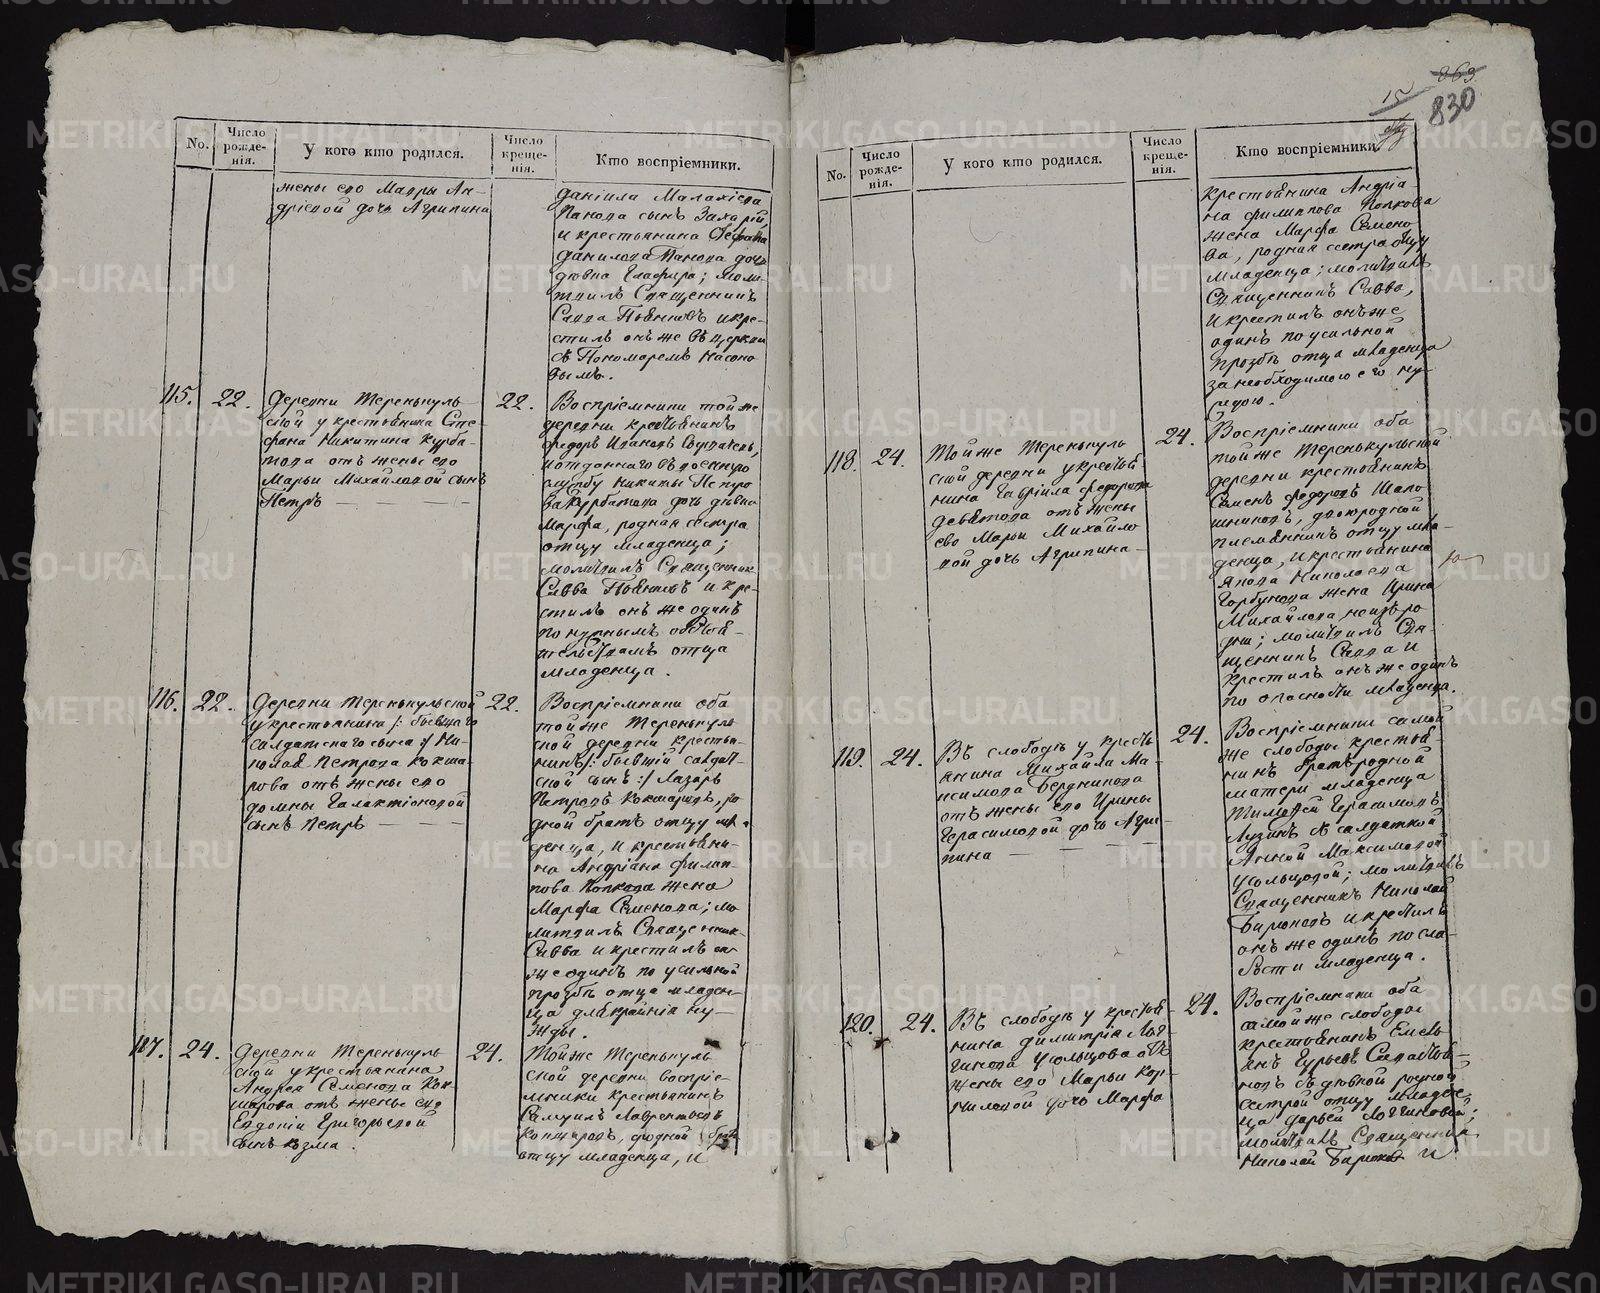 863
15
830
No.
Число рожде-нія.
У кого кто родился.
Число креще-нія.
Кто воспріемники.
жены его Мавры Ан-
дріевой дочь Агрипина
Даніила Малахіева
Панова сынъ Захарій,
и крестьянина
Данилова Панова доч
Глафира; моли-
твилъ Священникъ
Савва Пьянковъ и кре-
стилъ онъ же въ церкви
съ Пономаремъ Насоно
вымъ.
115.
22.
Деревни Теренькуль-
ской у крестьянина Сте-
фана Никитина Курба-
това отъ жены его
Марьи Михайловой сынъ
Петръ
22.
Воспріемники той же
деревни крестьянинъ
Федоръ Ивановъ
и отданнаго въ военную
службу Никиты Петро
ва Курбатова дочь девка
Марфа, родная сестра
отцу младенца;
молитвилъ Священник
Савва Пьянковъ и кре-
стилъ онъ же одинъ
по нужнымъ обстоя-
тельствамъ отца
младенца.
116.
22.
Деревни Теренькульской
у крестьянина /: бывшаго
салдатскаго сына :/ Ни-
колая Петрова Кокша-
рова отъ жены его
Домны Галактіоновой
сынъ Петръ
22.
Воспріемники оба
той же Теренькуль
ской деревни крестья-
нинъ /: бывшій салдат-
ской сынъ :/ Лазарь
Петровъ Кокшаровъ, ро
дной братъ отцу мла-
денца, и крестьяни-
на Андріана Филип-
пова Попкова жена
Марфа Семенова; мо-
литвилъ Священник
Савва и крестилъ он
же одинъ по усильной
прозбѣ отца младен-
ца для крайнія ну-
жды.
117.
24.
Деревни Теренькуль
ской у крестьянина
Андрея Семенова Кок-
шарова отъ жены его
Евдокіи Григорьевой
сынъ Козма.
24.
Той же Теренькуль
ской деревни воспріе-
мники крестьянинъ
Самуилъ Лаврентьевъ
Кокшаровъ, родной братъ
отцу младенца, и
No.
Число рожде-нія.
У кого кто родился.
Число креще-нія.
Кто воспріемники.
крестьянина Андріа-
на Филиппова Попкова
жена Марфа Семено-
ва, родная сестра отцу
младенца; молитвилъ
Священникъ Савва,
и крестилъ онъ же
одинъ по усильной
прозбѣ отца младенца
за необходимою его ну-
ждою.
118.
24.
Той же Теренькуль
ской деревни у крестья
нина Гавріила Федорова
Девятова отъ жены
его Марьи Михайло
вой дочь Агрипина
24.
Воспріемники оба
той же Теренькульской
деревни крестьянинъ
Семенъ Федоровъ Шапо-
шниковъ, двоюродной
племянникъ отцу мла-
денца, и крестьянина
Якова Николаева
Горбунова жена Ирина
Михайлова, не изъ ро
дни; молитвилъ Свя-
щенникъ Савва и
крестилъ онъ же одинъ
по опасности младенца.
119.
24.
Въ слободѣ у кресть
янина Михайла Ма-
ксимова Бердникова
отъ жены его Ирины
Герасимовой дочь Агри-
пина
24.
Воспріемники самой
же слободы крестья
нинъ братъ родной
матери младенца
Тимофей Герасимовъ
Лузинъ съ салдаткой
Анной Максимовой
Усольцовой; молитвилъ
Священникъ Николай
Бирюковъ и крестилъ
онъ же одинъ по сла-
бости младенца.
120.
24.
Въ слободѣ у крестья
нина Димитрія Лог-
гинова Усольцова отъ
жены его Марьи Кор-
ниловой дочь Марфа
24.
Воспріемники оба
самой же слободы
крестьянинъ Емель
янъ Гурьевъ
новъ съ девкой родной
сестрой отцу младен-
ца Дарьей Логгиновой;
молитвилъ Священник
Николай Бирюковъ и